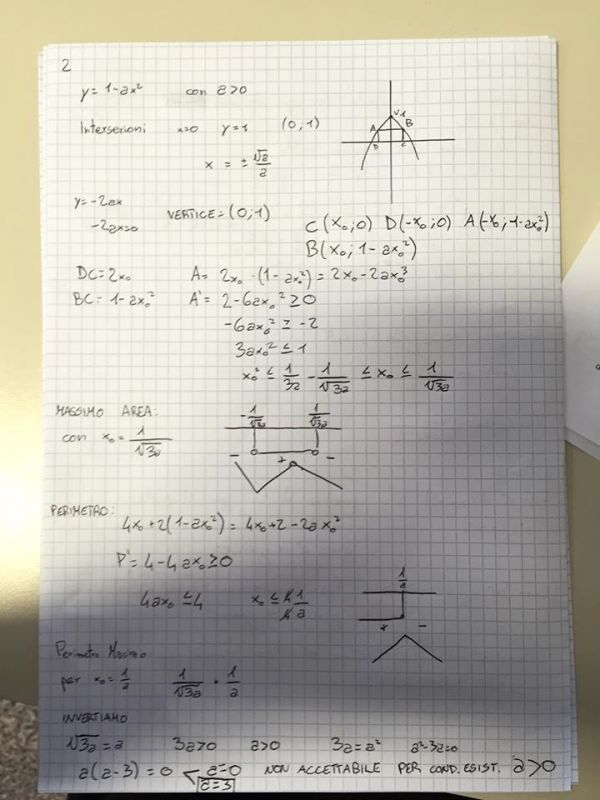 2
y = 1-ax² con a>0
Intersezioni x=0 y=1 (0;1)
x = ± √a/a
V 1
A B
D C
y' = -2ax
-2ax=0
VERTICE = (0;1)
C(x₀;0) D(-x₀;0) A(-x₀; 1-ax₀²)
B(x₀; 1-ax₀²)
DC = 2x₀ A = 2x₀ · (1-ax₀²) = 2x₀ - 2ax₀³
BC = 1-ax₀² A' = 2-6ax₀² ≥ 0
-6ax₀² ≥ -2
3ax₀² ≤ 1
x₀² ≤ 1/3a -1/√3a ≤ x₀ ≤ 1/√3a
MASSIMO AREA:
con x₀ = 1/√3a
-1/√3a 1/√3a
- + -
PERIMETRO:
4x₀+2(1-ax₀²) = 4x₀+2-2ax₀²
P' = 4-4ax₀ ≥ 0
4ax₀ ≤ 4 x₀ ≤ 4/4 1/a
1/a
+ -
Perimetro Massimo
per x₀ = 1/a 1/√3a = 1/a
INVERTIAMO
√3a = a 3a>0 a>0 3a = a² a²-3a=0
a(a-3) = 0 a=0 NON ACCETTABILE PER COND. ESIST. a>0
a=3